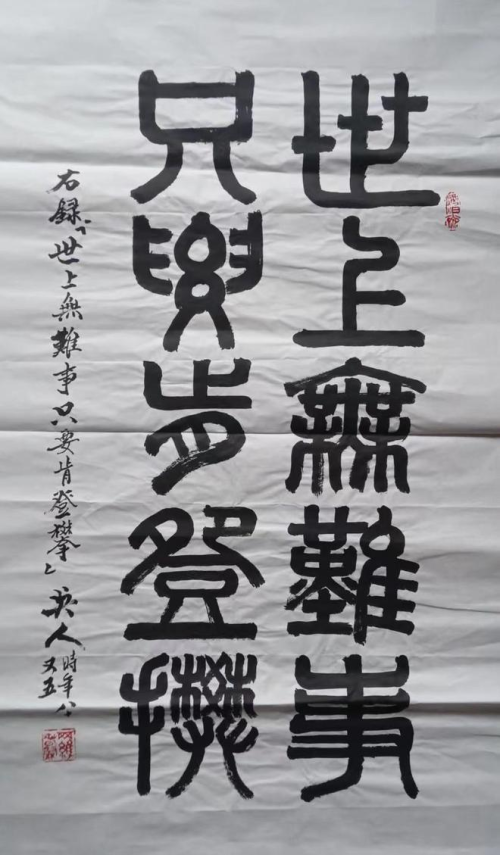 世上無難事
只要肯登攀
右録「世上無難事只要肯登攀」人時年八
又五